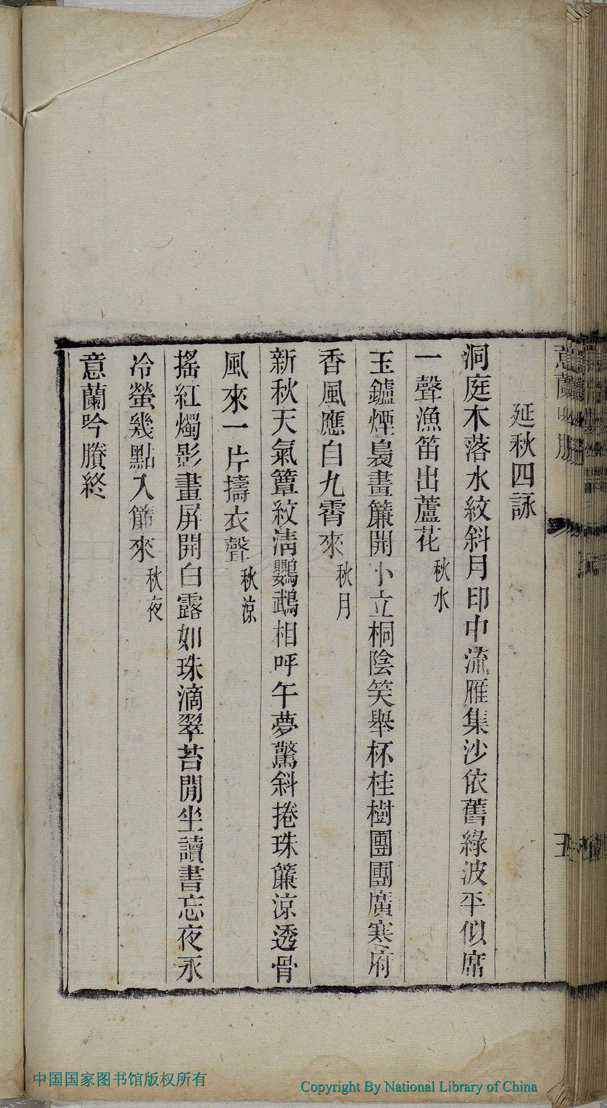 延秋四詠
洞庭木落水紋斜月印中流雁集沙依舊綠波平似席
一聲漁笛出蘆花秋水
玉鑪煙裊畫簾開小立桐陰笑舉杯桂樹團團廣寒府
香風應白九霄來秋月
新秋天氣簟紋淸鸚鵡相呼午夢驚斜捲珠簾涼透骨
風來一片擣衣聲秋涼
搖紅燭影畫屏開白露如珠滴翠苔閒坐讀書忘夜永
冷螢幾點入簾來秋夜
意蘭吟賸終
意蘭吟賸
中国国家图书馆版权所有
Copyright By National Library of China